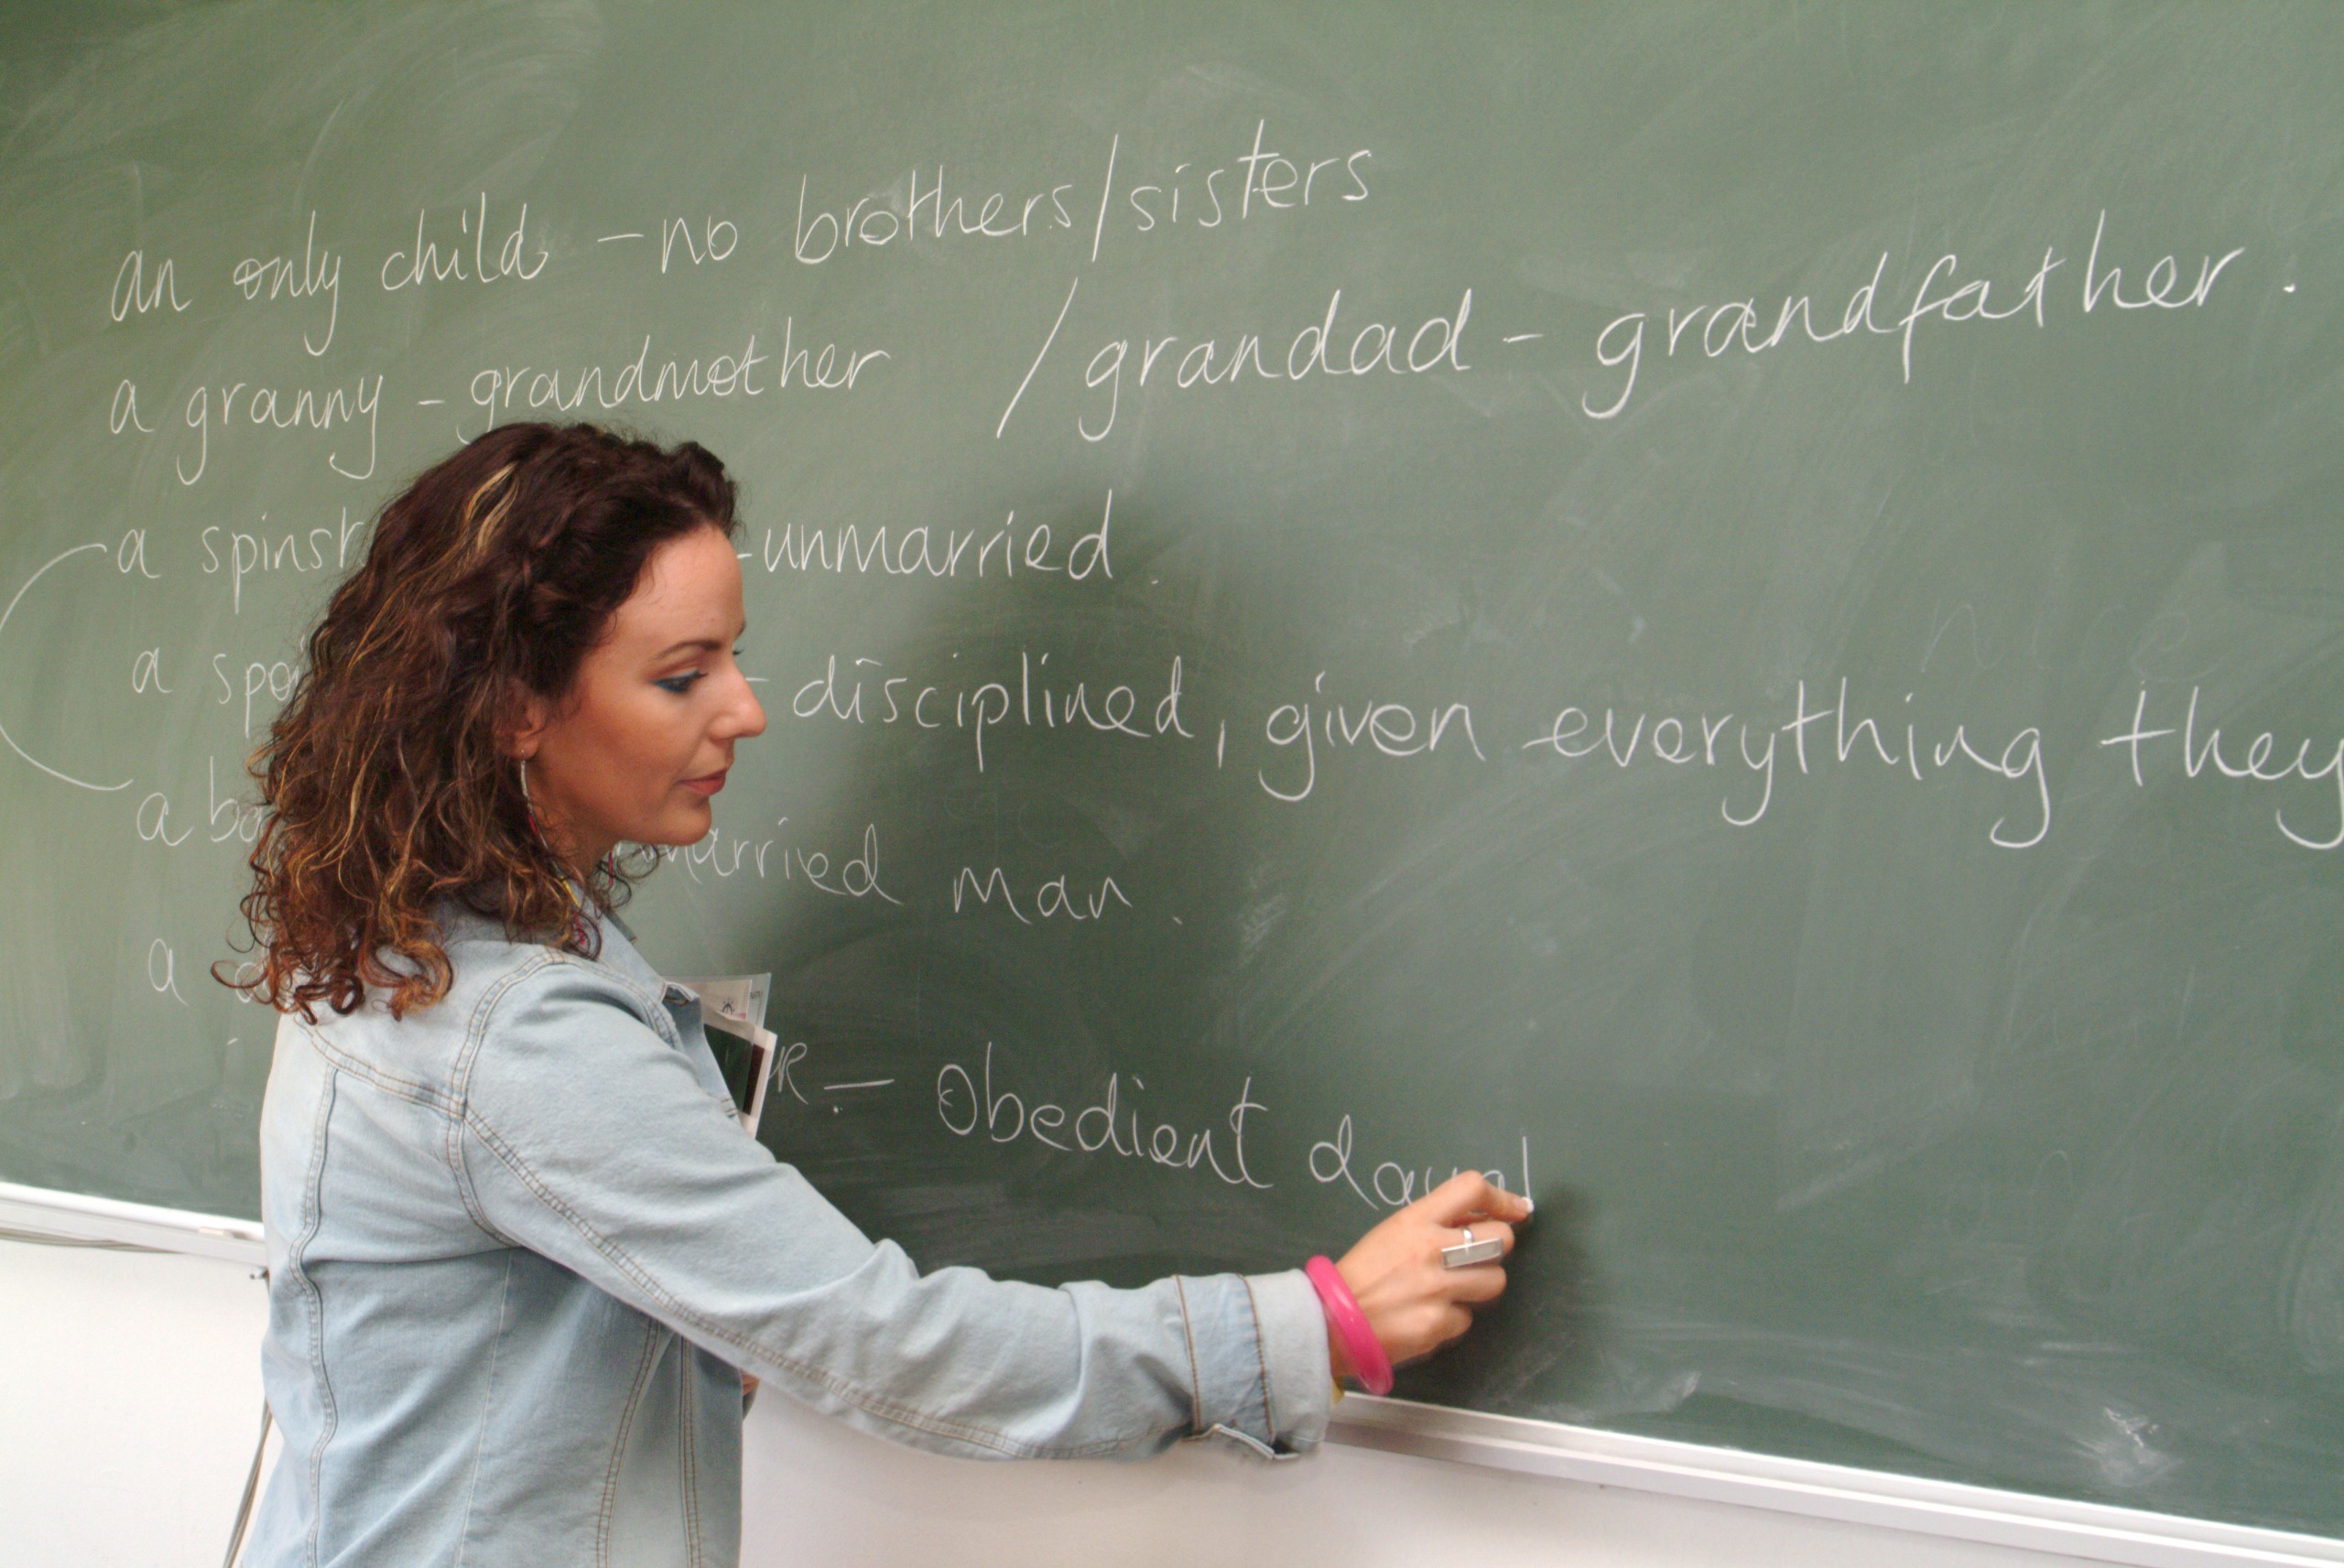 an only child - no brothers/sisters
a granny - grandmother / grandad - grandfather.
a - unmarried.
a - disciplined, given everything they
a man.
a
- Obedient